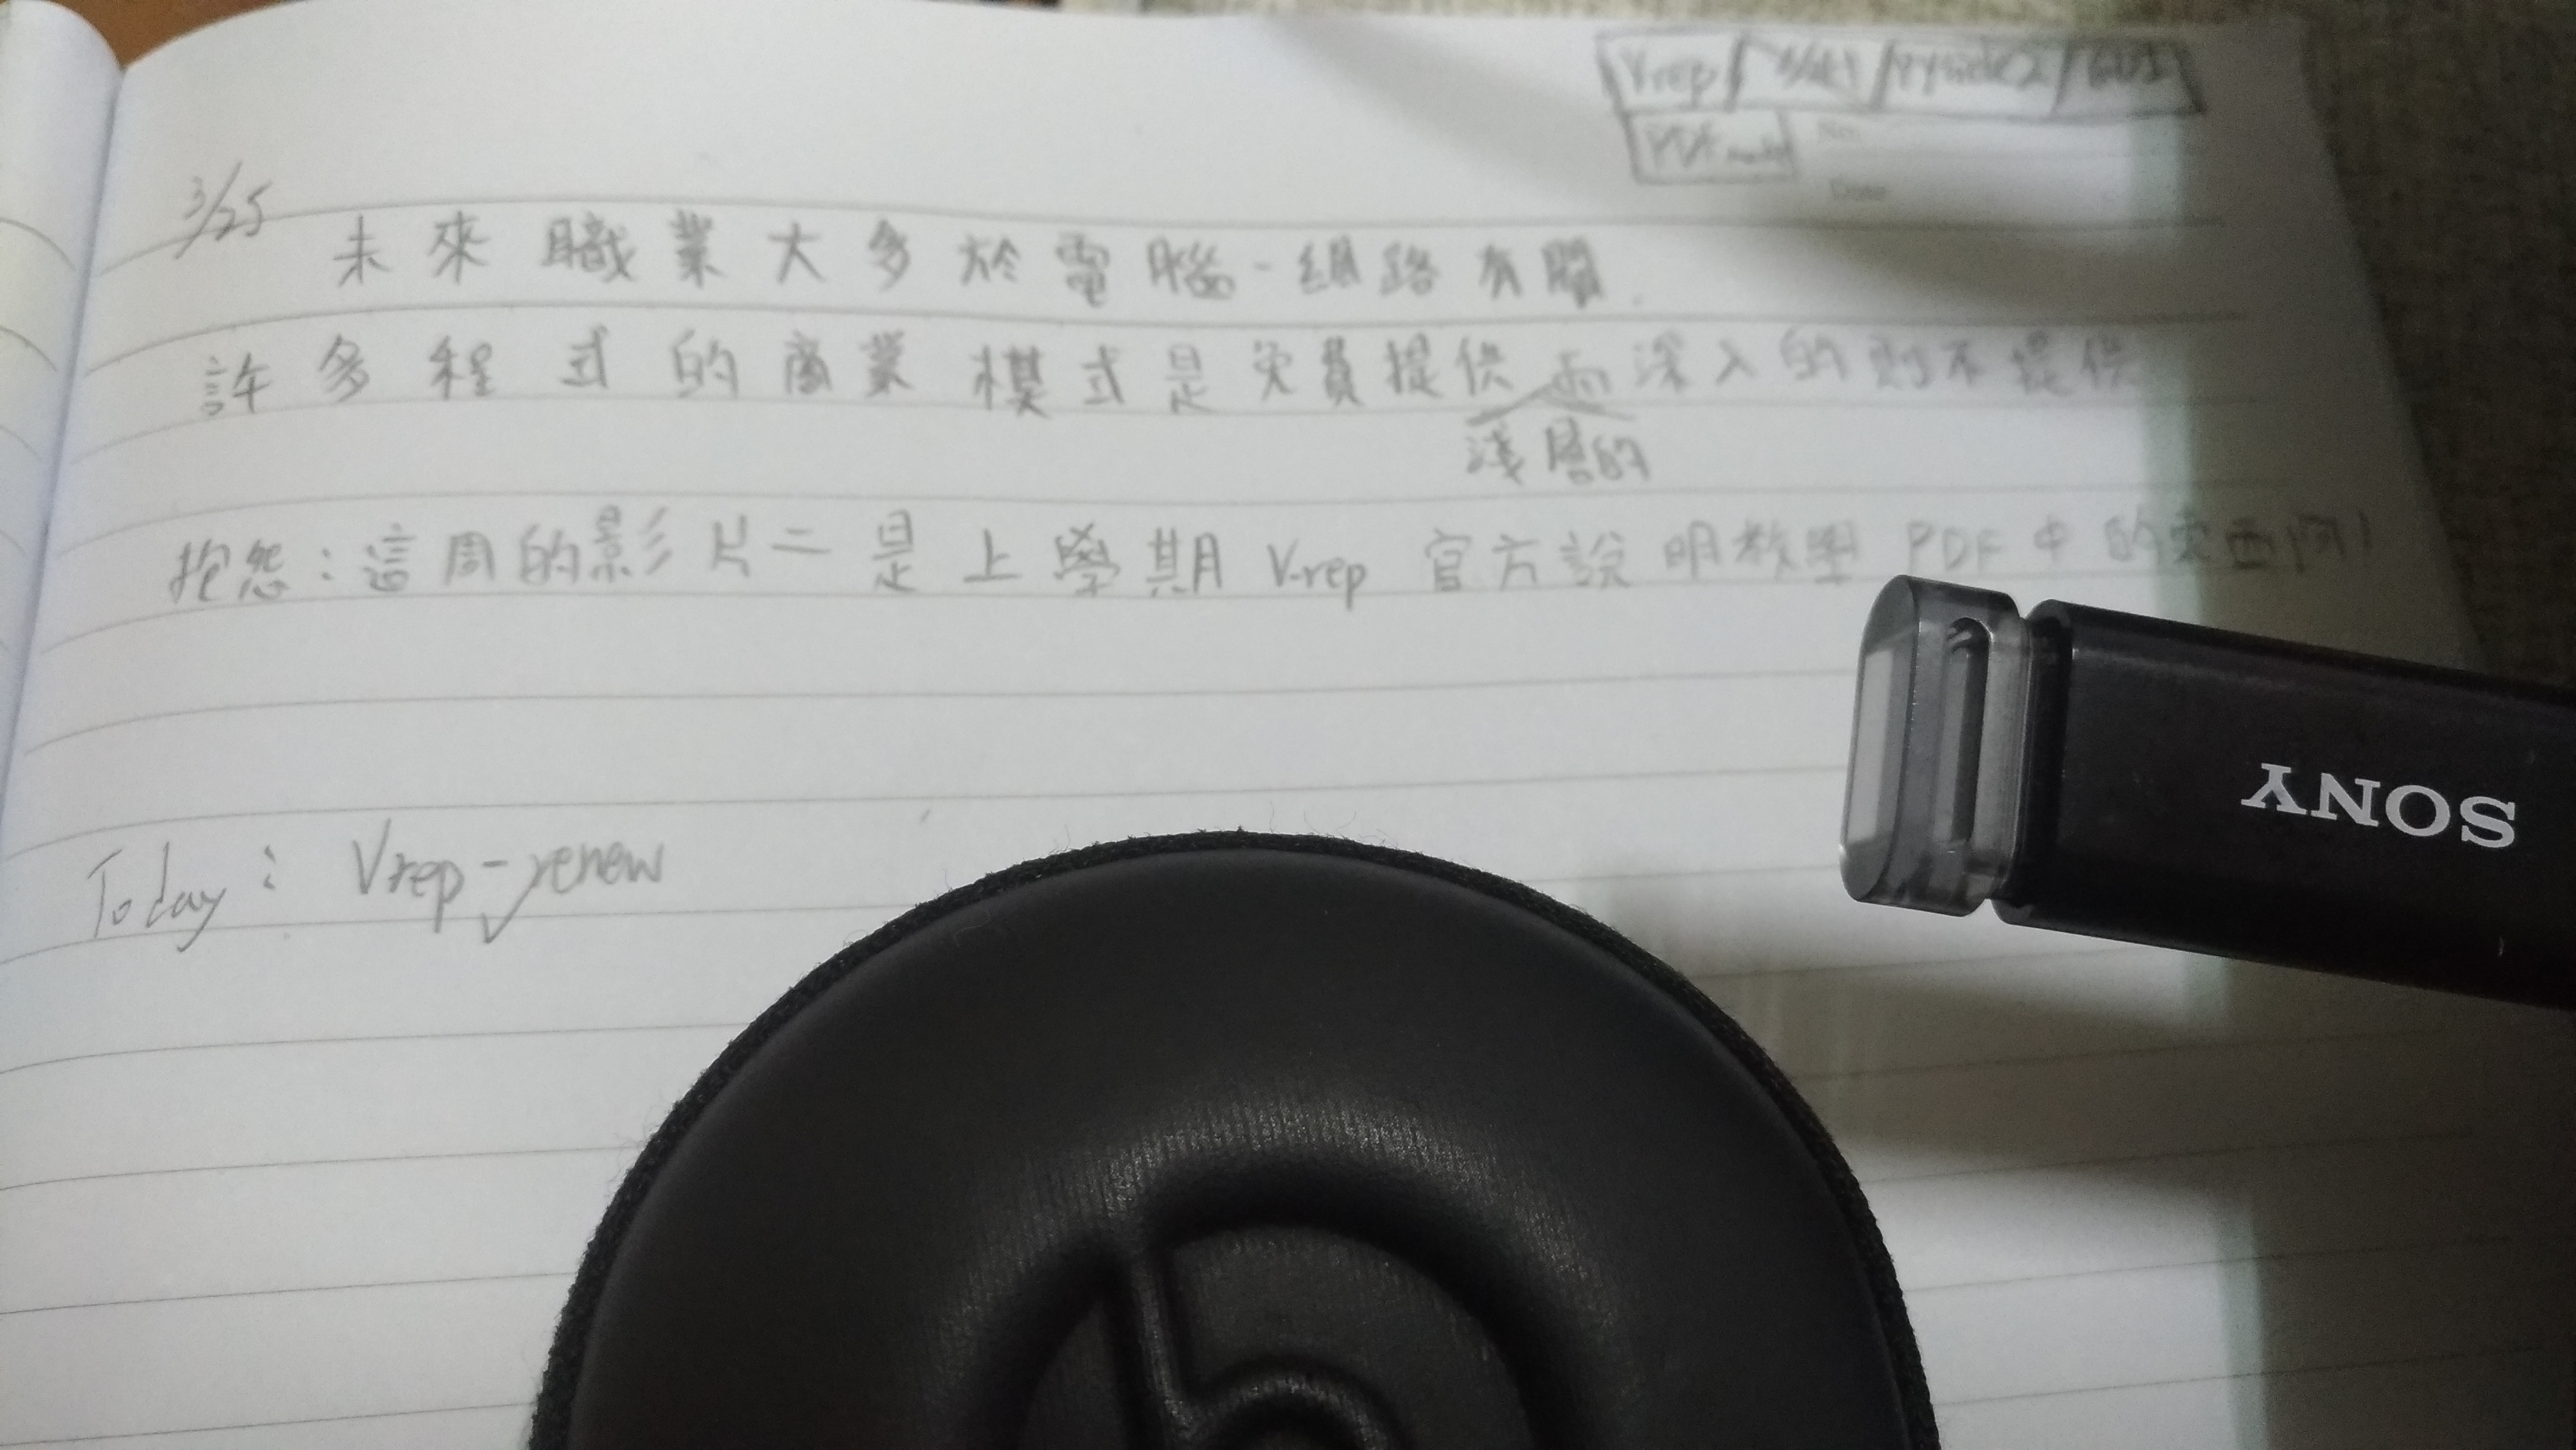 Vrep / pyside2 /
PDF
No.
Date
3/25
未來職業大多於電腦、網路有關.
許多程式的商業模式是免費提供而深入的則不提供
淺層的
抱怨:這周的影片二是上學期 V-rep 官方說明教學 PDF 中的東西啊!
Today: Vrep-renew
SONY
b